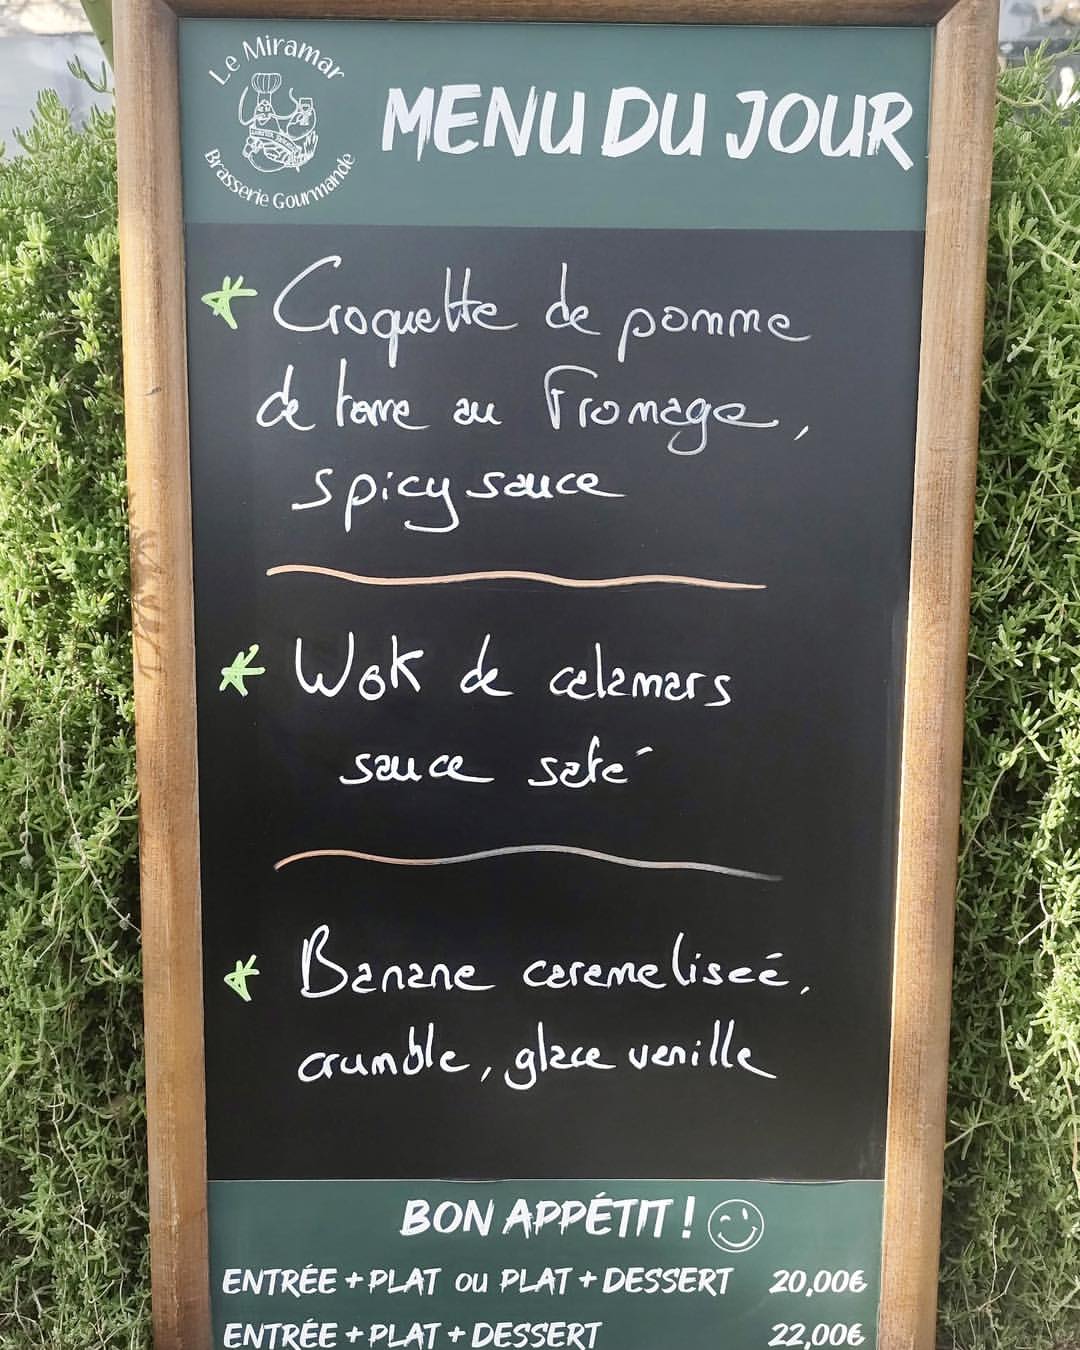 Le Miramar
Brasserie Gourmande
MENU DU JOUR
Croquette de pomme
de terre au Fromage,
spicy sauce
Wok de calamars
sauce saté
Banane carameliseé,
crumble, glace vanille
BON APPÉTIT !
ENTRÉE + PLAT OU PLAT + DESSERT 20,00€
ENTRÉE + PLAT + DESSERT 22,00€